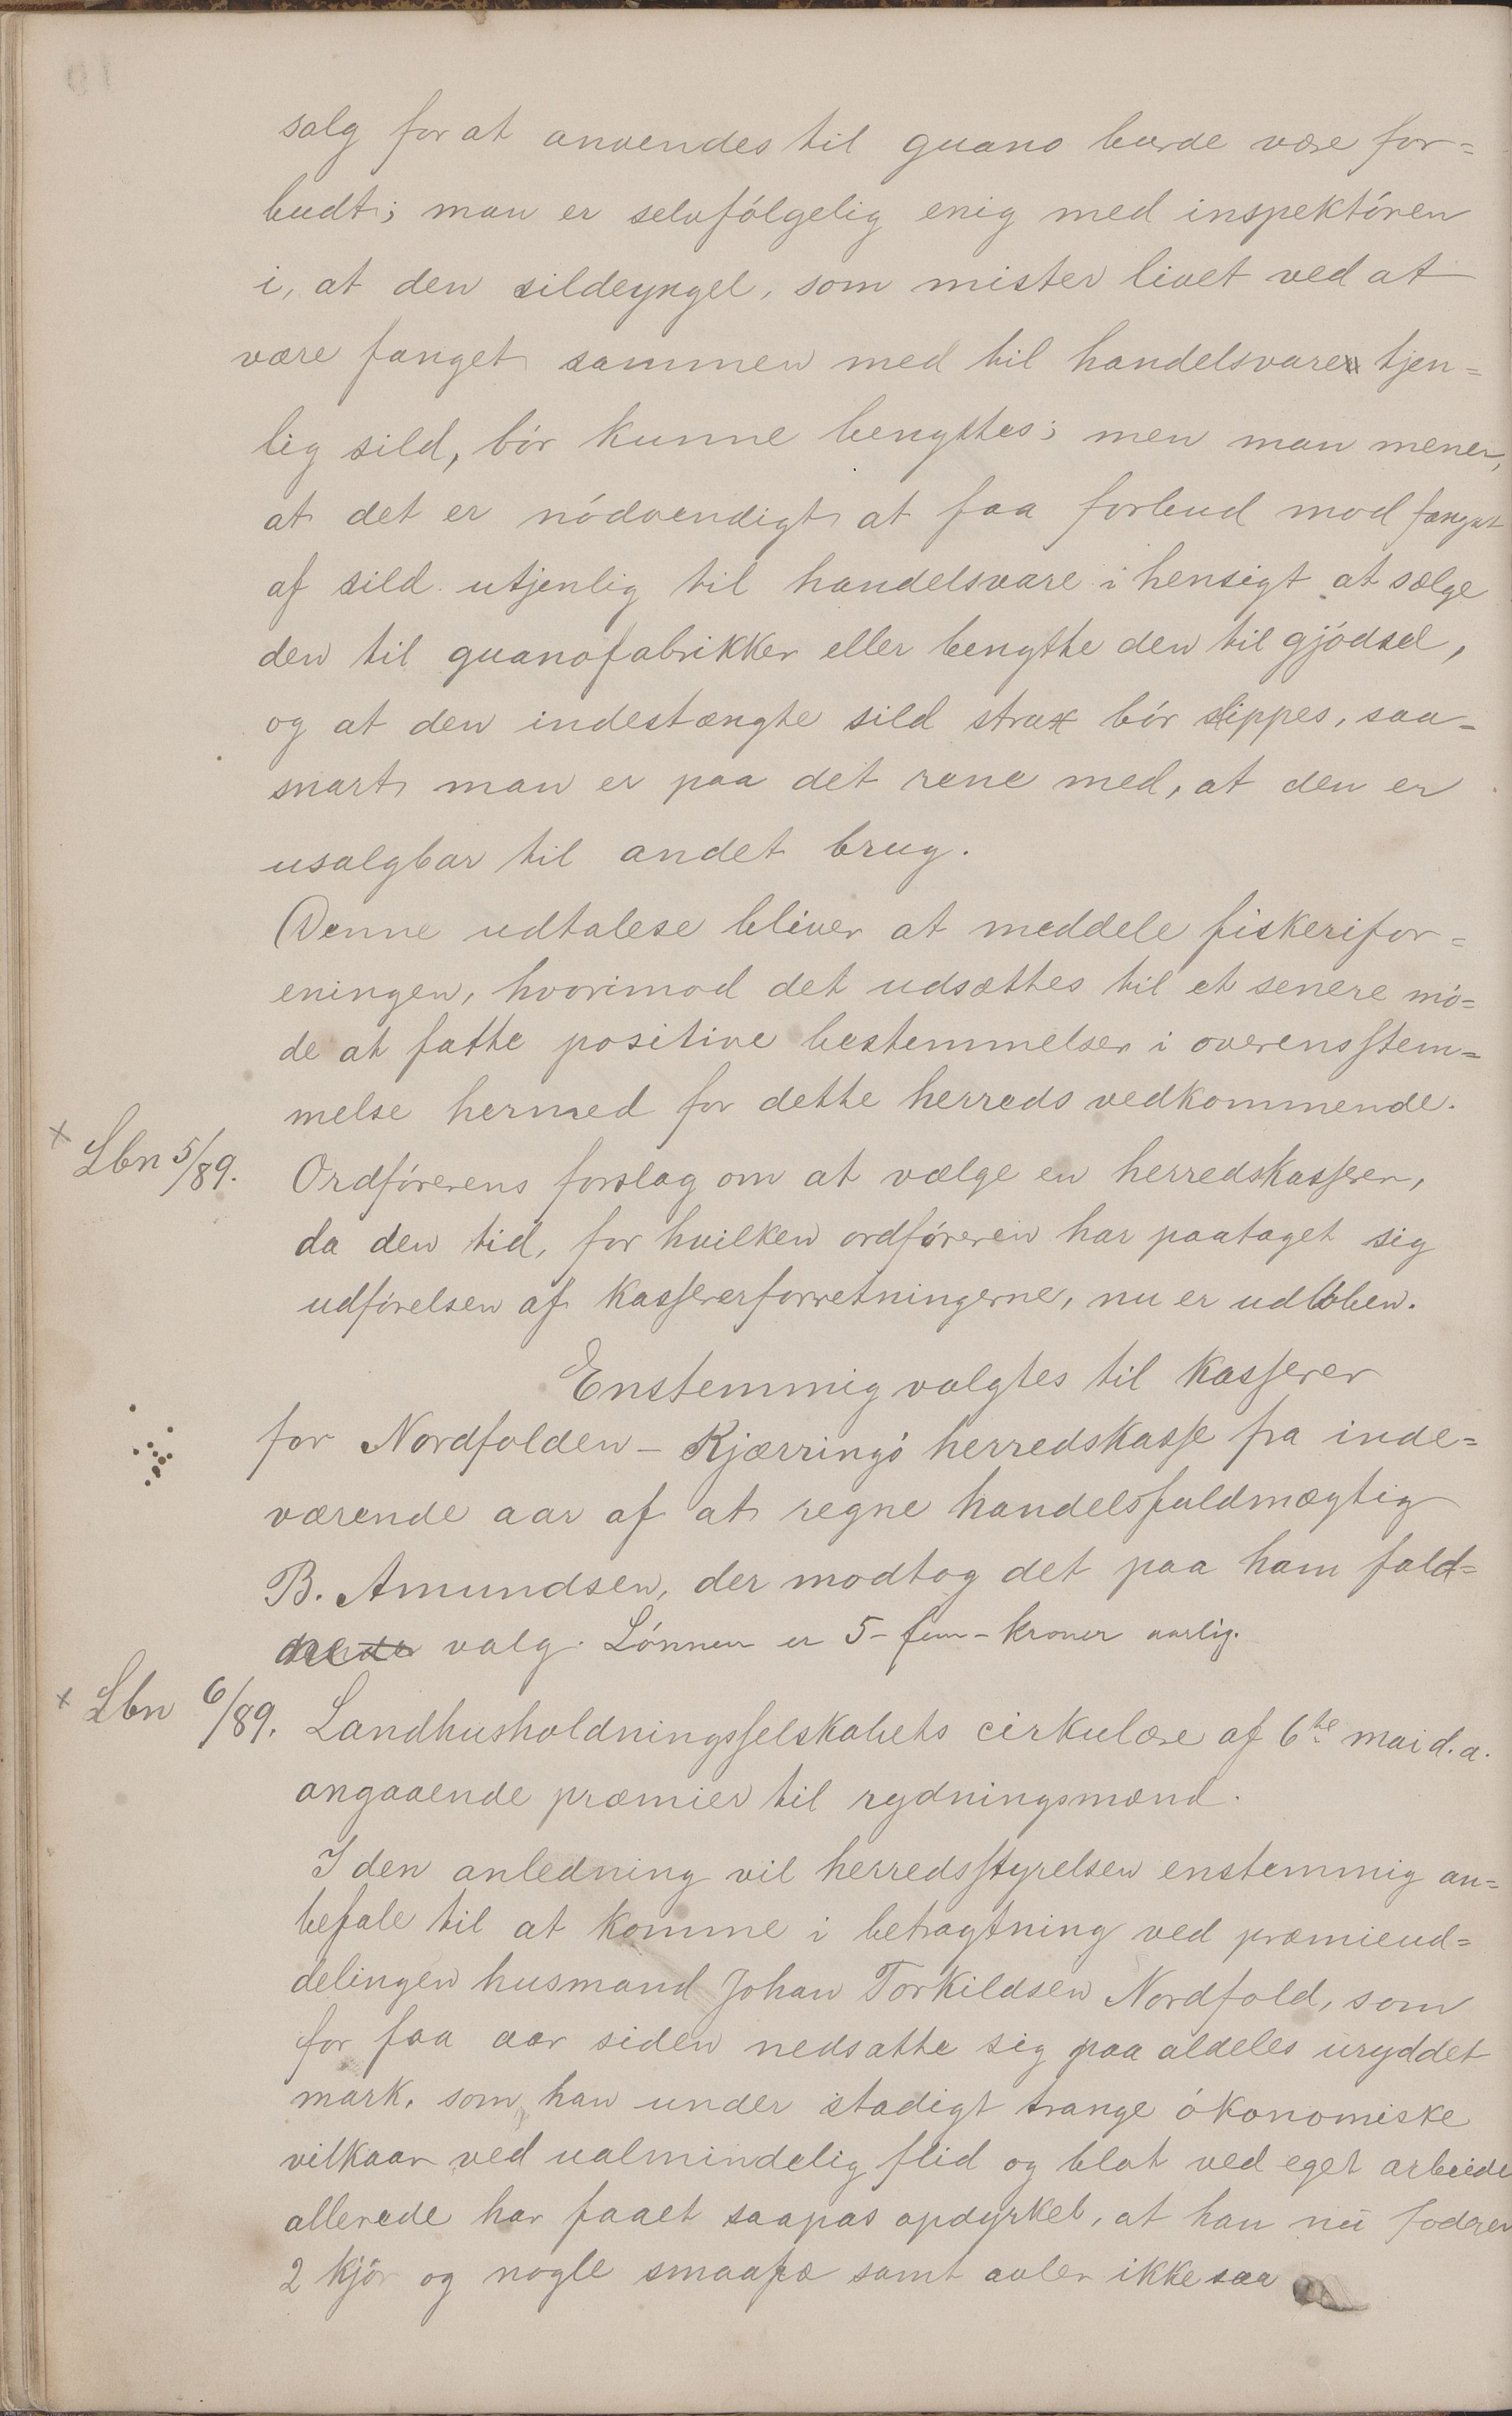 salg for at anvendes til guano burde være for=
budt; man er selvfølgelig enig med inspektøren
i, at den sildeyngel, som mister livet ved at
være fanget sammen med til handelsvare tjen=
lig sild, bør kunne benyttes; men man mener,
at det er nödvendigt at faa forbud mod fangst
af sild utjenlig til handelsvare i hensigt at sælge
den til guanofabrikker eller benytte den til gjödsel,
og at den indestængte sild strax bör slippes, saa-
snart man er paa det rene med, at den er
usalgbar til andet brug.
Denne udtalese bliver at meddele fiskerifor=
eningen, hvorimod det udsættes til et senere mö=
de at fatte positive bestemmelser i overensstem=
melse hermed for dette herreds vedkommende.
x Lbn 5/89. Ordförerens forslag om at vælge en herredskasserer,
da den tid, for hvilken ordföreren har paataget sig
udförelsen af kassererforretningerne, nu er udlöben.
Enstemmig valgtes til kasserer
for Nordfolden - Kjærringö herredskasse fra inde=
værende aar af at regne handelsfuldmægtig
B. Amundsen, der modtog det paa ham fald=
valg. Lönnen er 5 - fem - kroner aarlig.
x Lbn 6/89. Landhusholdningsselskabets cirkulære af 6te mai d. a.
angaaende præmier til rydningsmænd.
I den anledning vil herredsstyrelsen enstemmig an=
befale til at komme i betragtning ved præmieud=
delingen husmand Johan Torkildsen Nordfold, som
for faa aar siden nedsatte sig paa aldeles uryddet
mark, som han under stadigt trange ökonomiske
vilkaar ved ualmindelig flid og blot ved eget arbeide
allerede har faaet saapas opdyrket, at han nu foderer
2 kjör og nogle smaafæ samt avler ikke saa